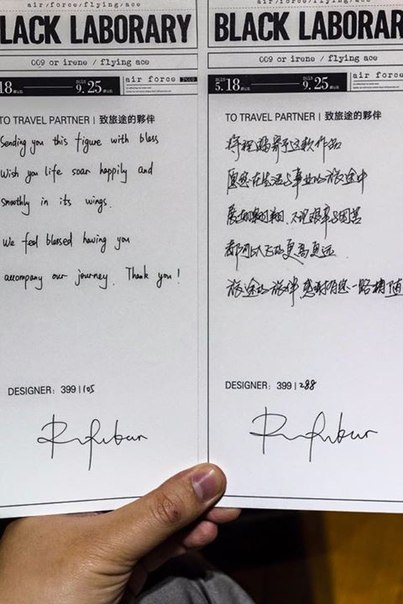 air/force/flying/ace
LACK LABORARY
009 or irene / flying ace
18 9.25 air force
TO TRAVEL PARTNER | 致旅途的夥伴
Sending you this figure with bless
Wish you life soar happily and
smoothly in its wings.
We feel blessed having you
accompany our journey. Thank you!
DESIGNER: 399 | 105
air/force/flying/ace
BLACK LABORAR
009 or irene / flying ace
5.18 9.25 air force
TO TRAVEL PARTNER | 致旅途的夥伴
将祝福寄予这款作品
愿您在生活与事业的旅途中
展翅翱翔、不论艰辛与困苦
都可以飞的更高更远
旅途的旅伴 感谢有您一路相随
DESIGNER: 399 | 288